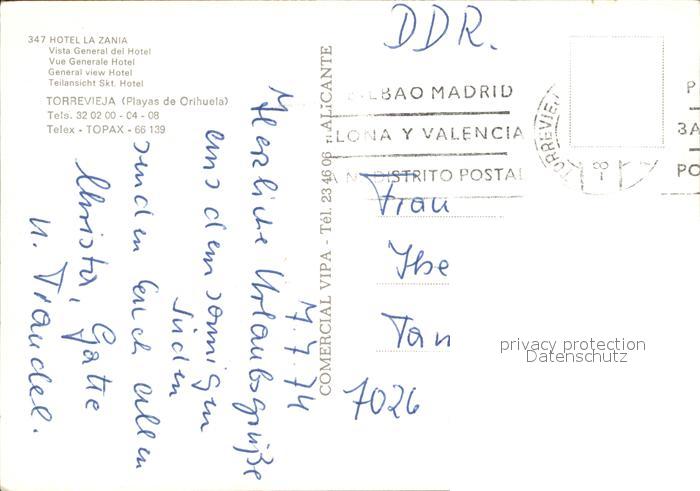 347 HOTEL LA ZANIA
Vista General del Hotel
Vue Generale Hotel
General view Hotel
Teilansicht Skt. Hotel
TORREVIEJA (Playas de Orihuela)
Tels. 32 02 00 - 04 - 08
Telex - TOPAX - 66 139
COMERCIAL VIPA - Tél. 23 46 06 - ALICANTE
7.7.74
Herzliche Urlaubsgrüße
aus dem sonnigen
Süden
senden Euch allen
Christa, Gatte
u. Traudel.
DDR.
BILBAO MADRID
LONA Y VALENCIA
DISTRITO POSTAL
TORREVIE
P
3A
PO
Frau
Ilse
Tan
7026
privacy protection
Datenschutz